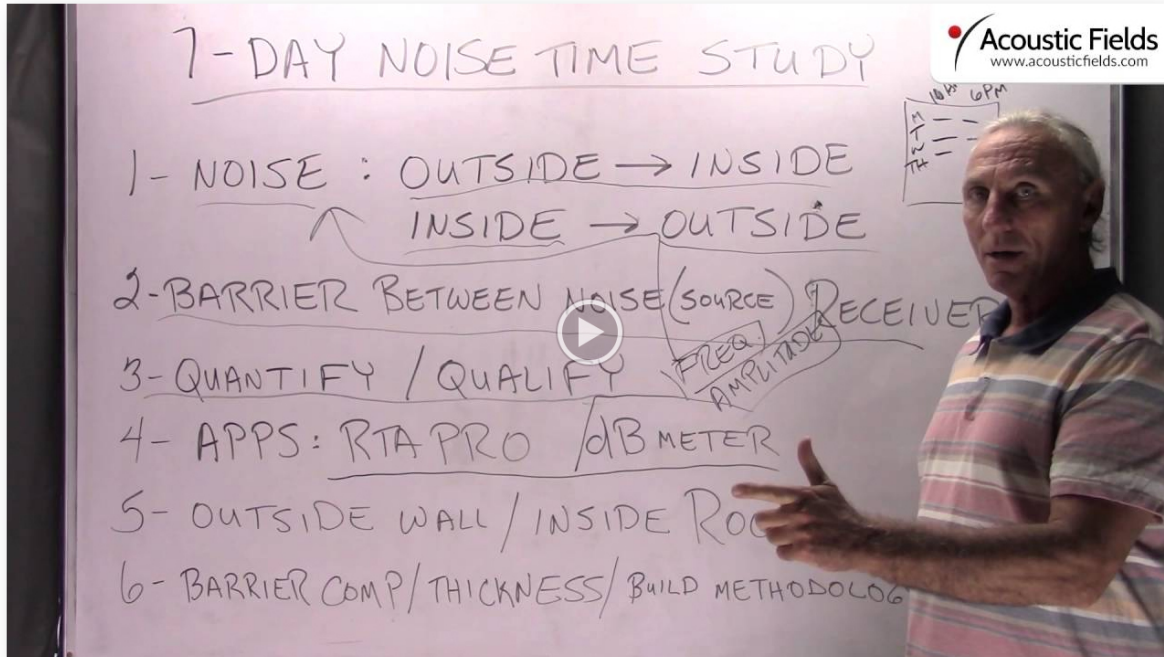 7-DAY NOISE TIME STUDY
Acoustic Fields
www.acousticfields.com
6PM
M
T
W
TH
1- NOISE : OUTSIDE → INSIDE
INSIDE → OUTSIDE
2-BARRIER BETWEEN NOISE (SOURCE) RECEIVER
FREQ.
AMPLITUDE
3-QUANTIFY / QUALIFY
4- APPS: RTA PRO / dB METER
5- OUTSIDE WALL / INSIDE ROO
6- BARRIER COMP / THICKNESS / BUILD METHODOLOG